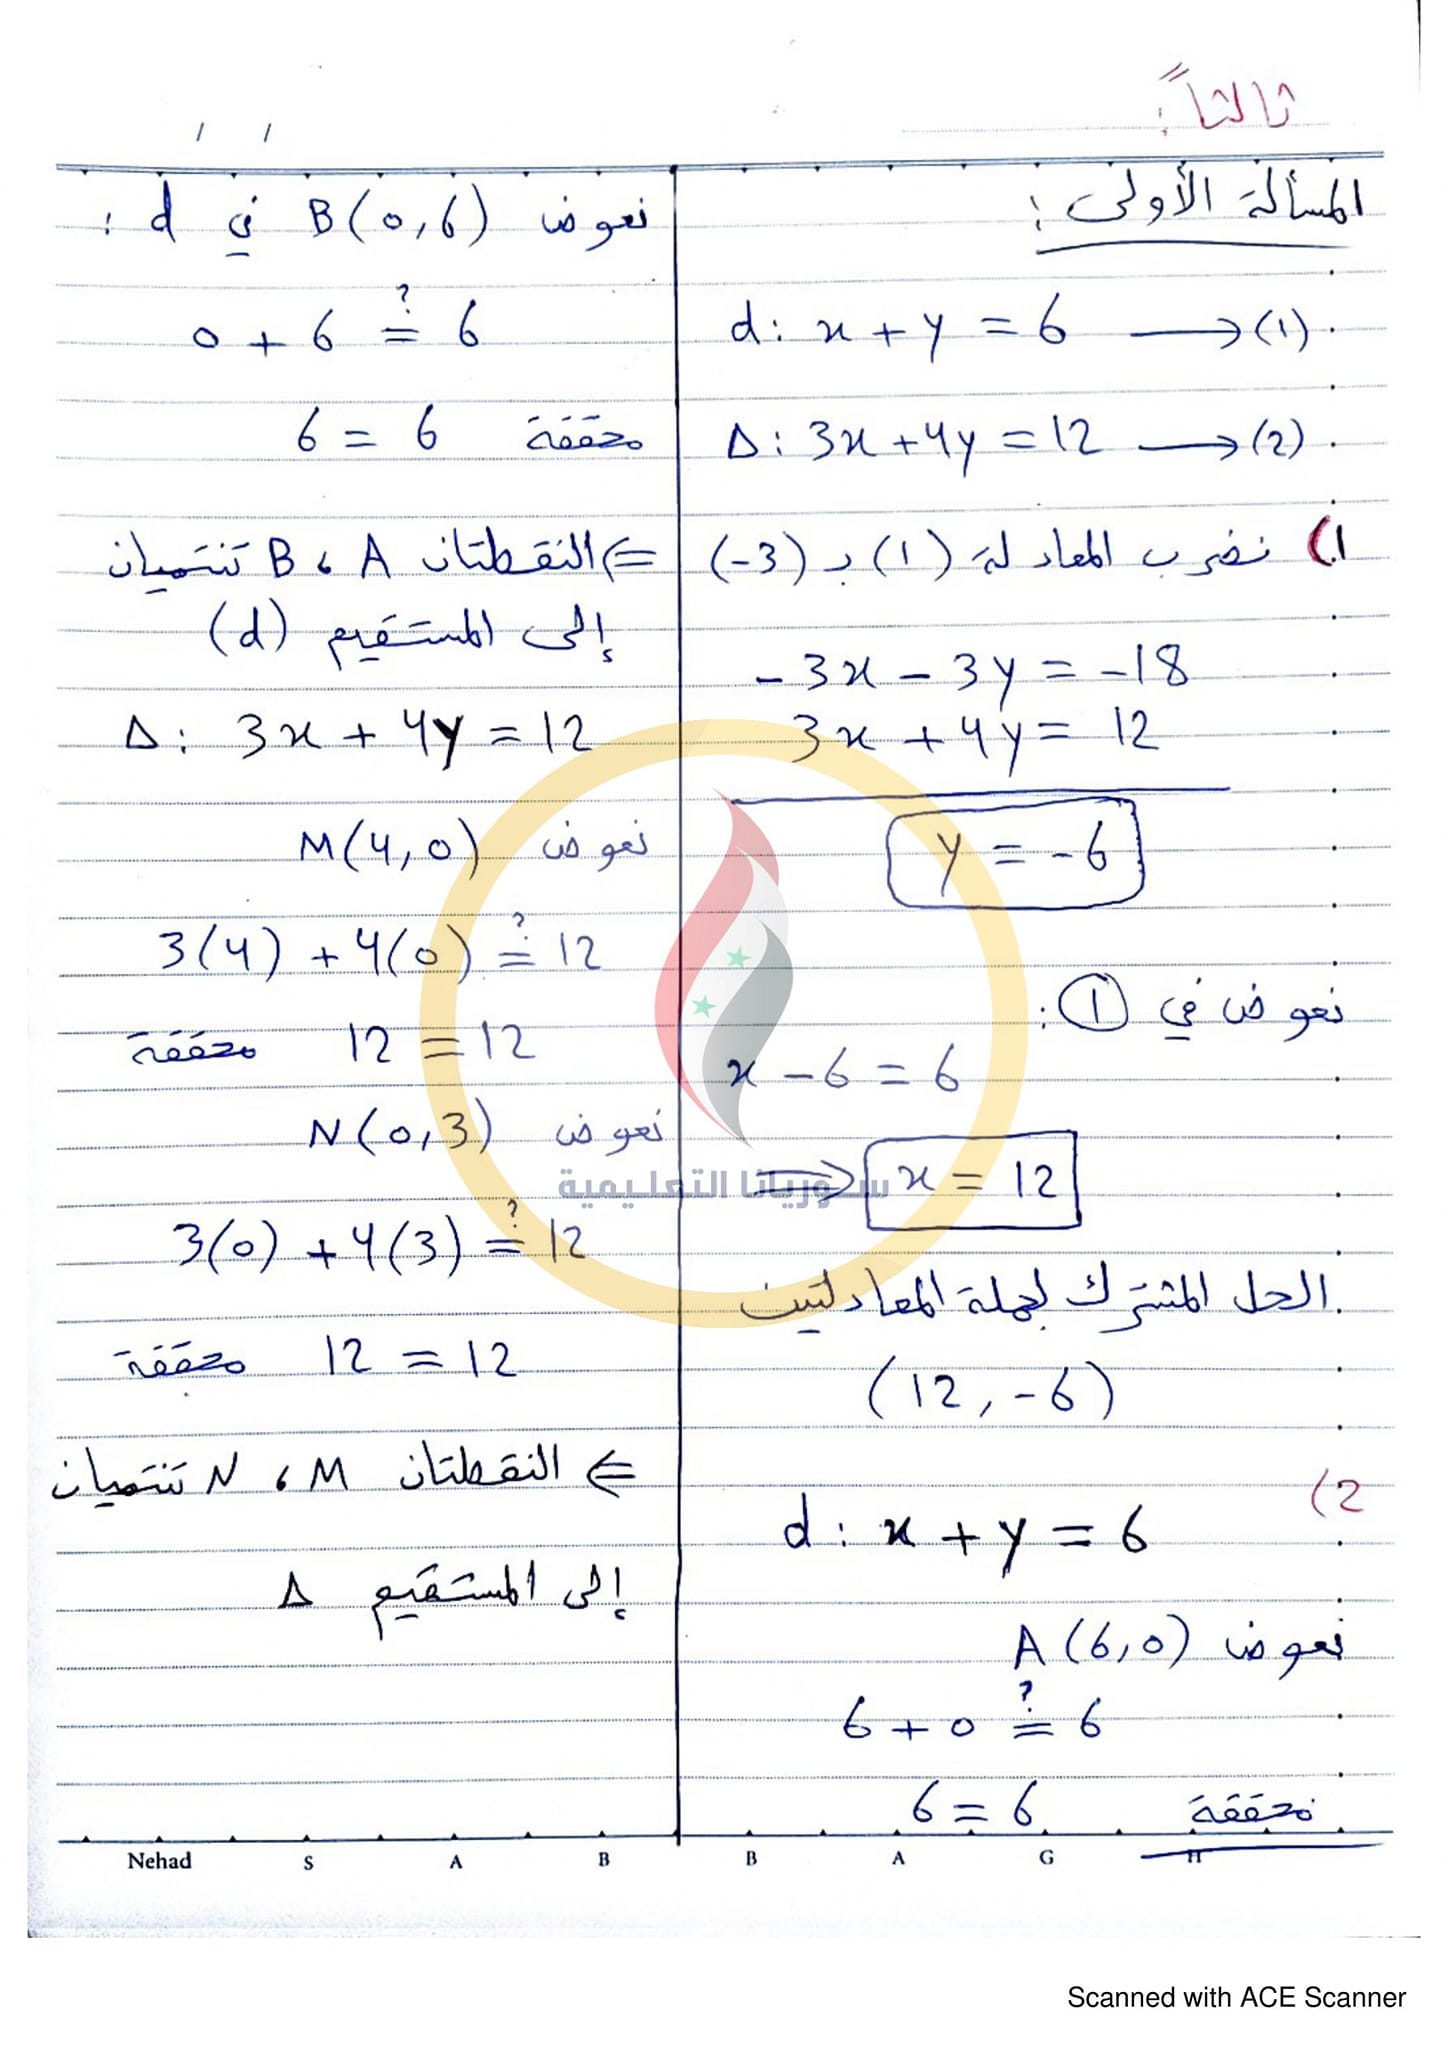 ثالثاً:
المسألة الأولى:
d: x + y = 6 ⟶ (1)
Δ: 3x + 4y = 12 ⟶ (2)
1) نضرب المعادلة (1) بـ (-3)
-3x - 3y = -18
3x + 4y = 12
y = -6
نعوض في ①:
x - 6 = 6
⟹ x = 12
الحل المشترك لجملة المعادلتين
(12, -6)
2)
d: x + y = 6
نعوض A(6,0)
6 + 0 ≟ 6
6 = 6 محققة
نعوض B(0,6) في d:
0 + 6 ≟ 6
6 = 6 محققة
⇐ النقطتان A، B تنتميان
إلى المستقيم (d)
Δ: 3x + 4y = 12
نعوض M(4,0)
3(4) + 4(0) ≟ 12
12 = 12 محققة
نعوض N(0,3)
3(0) + 4(3) ≟ 12
12 = 12 محققة
⇐ النقطتان M، N تنتميان
إلى المستقيم Δ
سوريانا التعليمية
Nehad S A B B A G H
Scanned with ACE Scanner